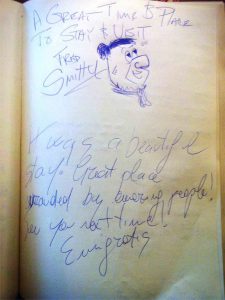 A GREAT TIME & PLACE
TO STAY & VISIT
FRED
SMITTY
It was a beautiful
stay! Great place
by loving people!
See you next time!